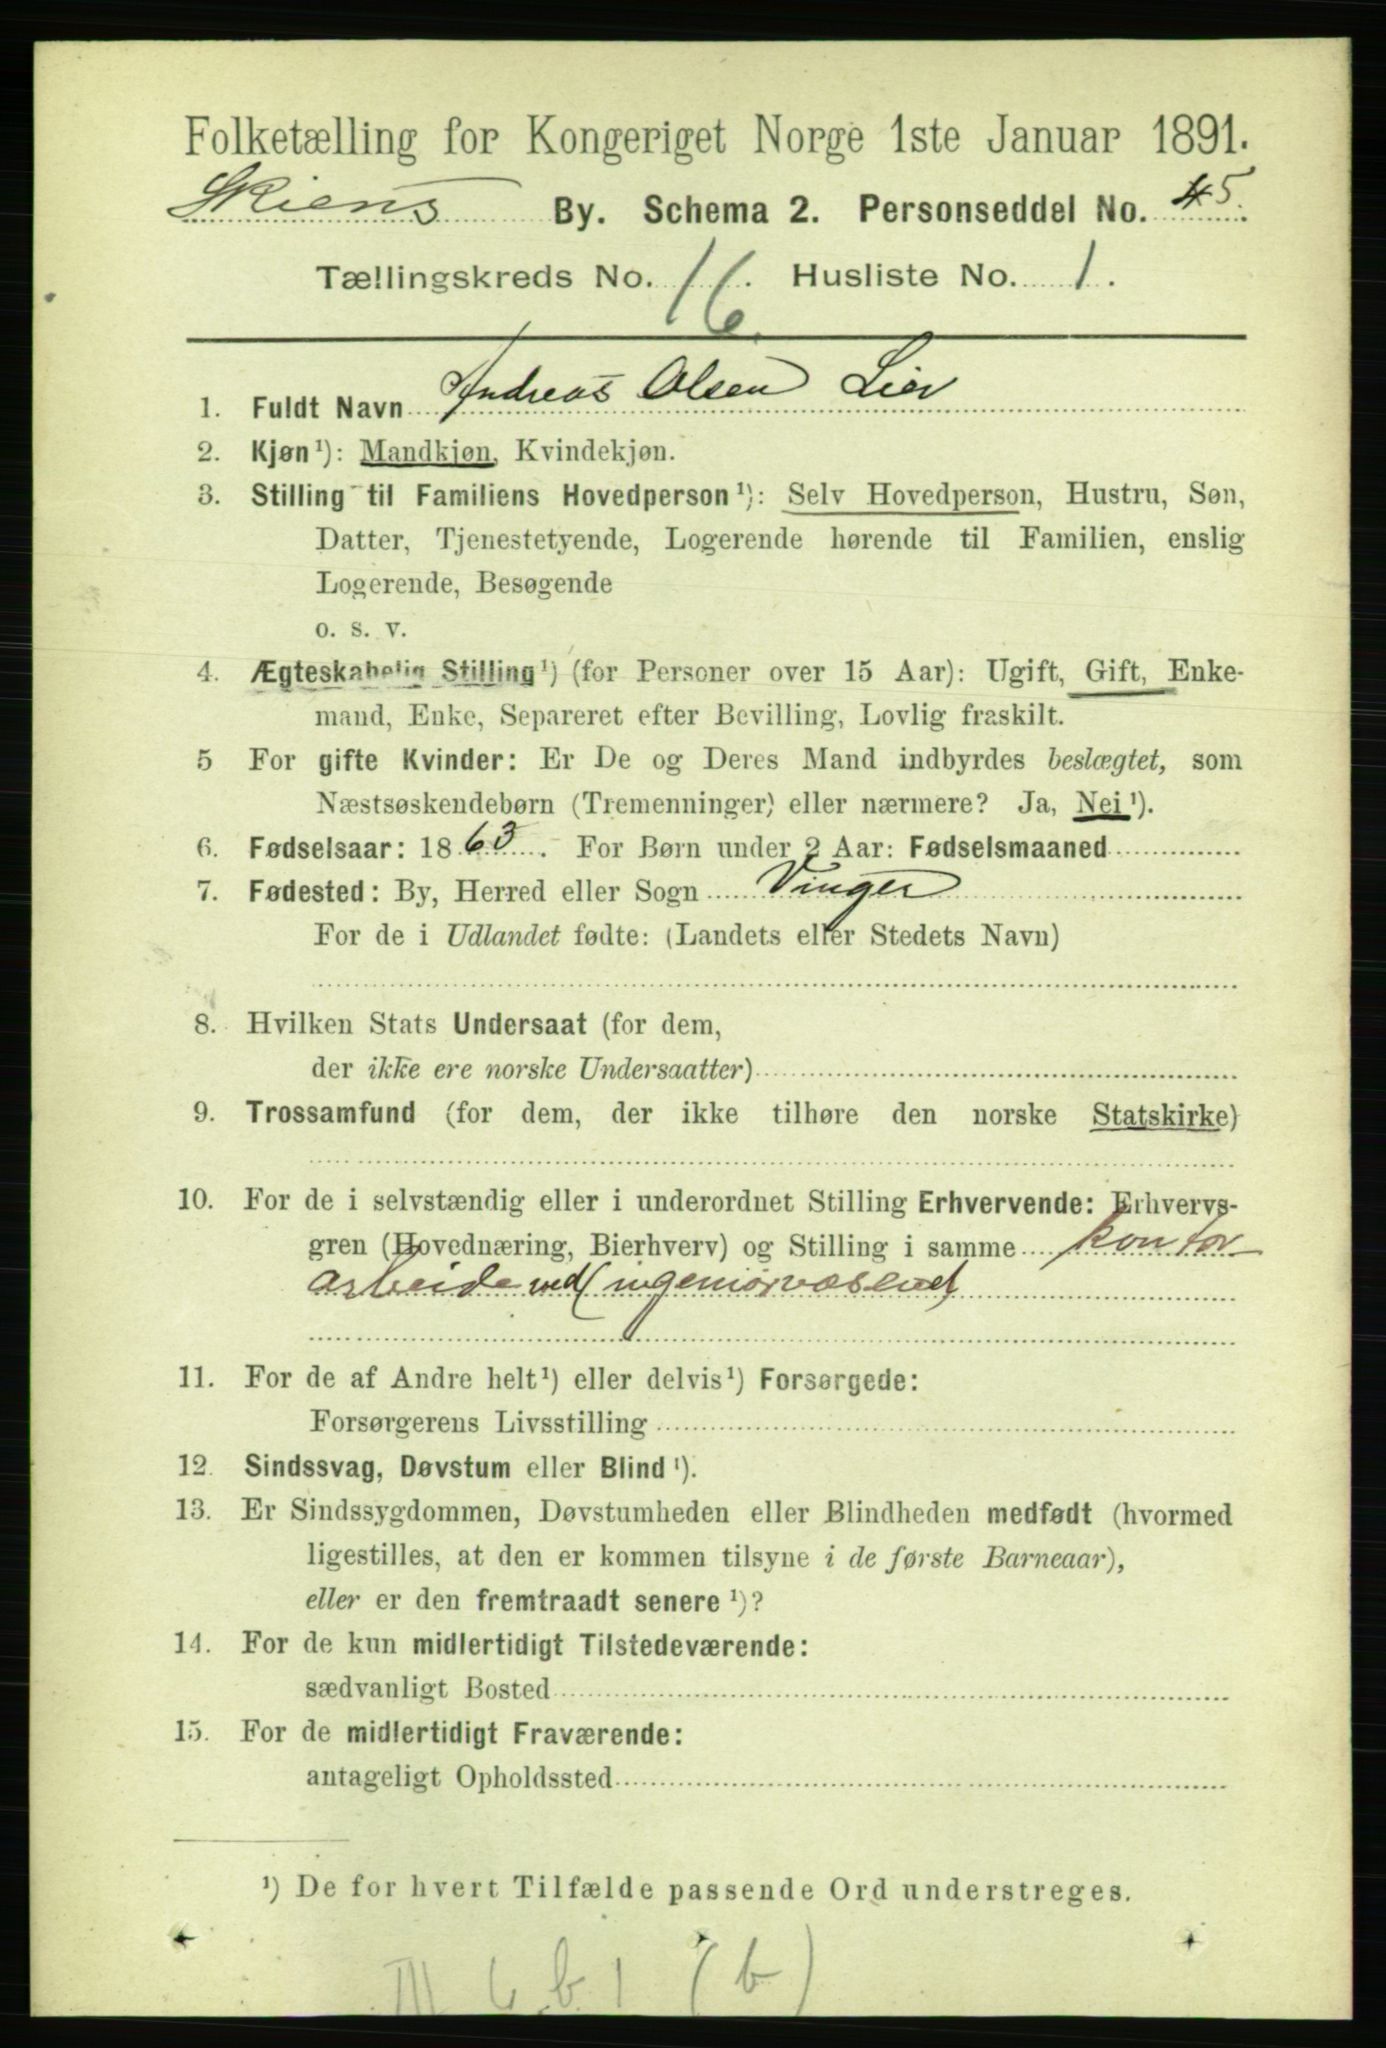 Folketælling for Kongeriget Norge 1ste Januar 1891.
Skiens By. Schema 2. Personseddel No. 45.
Tællingskreds No. 16. Husliste No. 1.
1. Fuldt Navn Andreas Olsen Lier
2. Kjøn ¹): Mandkjøn, Kvindekjøn.
3. Stilling til Familiens Hovedperson ¹): Selv Hovedperson, Hustru, Søn,
Datter, Tjenestetyende, Logerende hørende til Familien, enslig
Logerende, Besøgende
o. s. v.
4. Ægteskabelig Stilling ¹) (for Personer over 15 Aar): Ugift, Gift, Enke-
mand, Enke, Separeret efter Bevilling, Lovlig fraskilt.
5 For gifte Kvinder: Er De og Deres Mand indbyrdes beslægtet, som
Næstsøskendebørn (Tremenninger) eller nærmere? Ja, Nei ¹).
6. Fødselsaar: 1863. For Børn under 2 Aar: Fødselsmaaned
7. Fødested: By, Herred eller Sogn Vinger
For de i Udlandet fødte: (Landets eller Stedets Navn)
8. Hvilken Stats Undersaat (for dem,
der ikke ere norske Undersaatter)
9. Trossamfund (for dem, der ikke tilhøre den norske Statskirke)
10. For de i selvstændig eller i underordnet Stilling Erhvervende: Erhvervs-
gren (Hovednæring, Bierhverv) og Stilling i samme kontor
arbeide ved ingeniørvæsenet
11. For de af Andre helt ¹) eller delvis ¹) Forsørgede:
Forsørgerens Livsstilling
12. Sindssvag, Døvstum eller Blind ¹).
13. Er Sindssygdommen, Døvstumheden eller Blindheden medfødt (hvormed
ligestilles, at den er kommen tilsyne i de første Barneaar),
eller er den fremtraadt senere ¹)?
14. For de kun midlertidigt Tilstedeværende:
sædvanligt Bosted
15. For de midlertidigt Fraværende:
antageligt Opholdssted
¹) De for hvert Tilfælde passende Ord understreges.
III 6 b 1 (b)